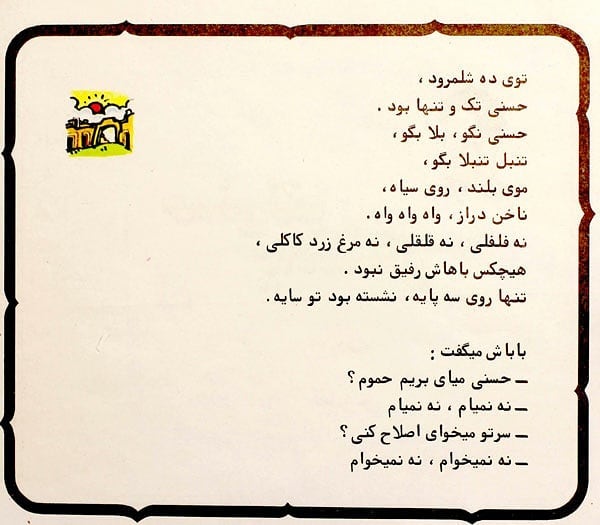 توی ده شلمرود ،
حسنی تک و تنها بود .
حسنی نگو، بلا بگو،
تنبل تنبلا بگو،
موی بلند ، روی سیاه،
ناخن دراز، واه واه واه.
نه فلفلی ، نه قلقلی ، نه مرغ زرد کاکلی ،
هیچکس باهاش رفیق نبود .
تنها روی سه پایه، نشسته بود تو سایه.
باباش میگفت :
ــ حسنی میای بریم حموم؟
ــ نه نمیام ، نه نمیام
ــ سرتو میخوای اصلاح کنی؟
ــ نه نمیخوام ، نه نمیخوام